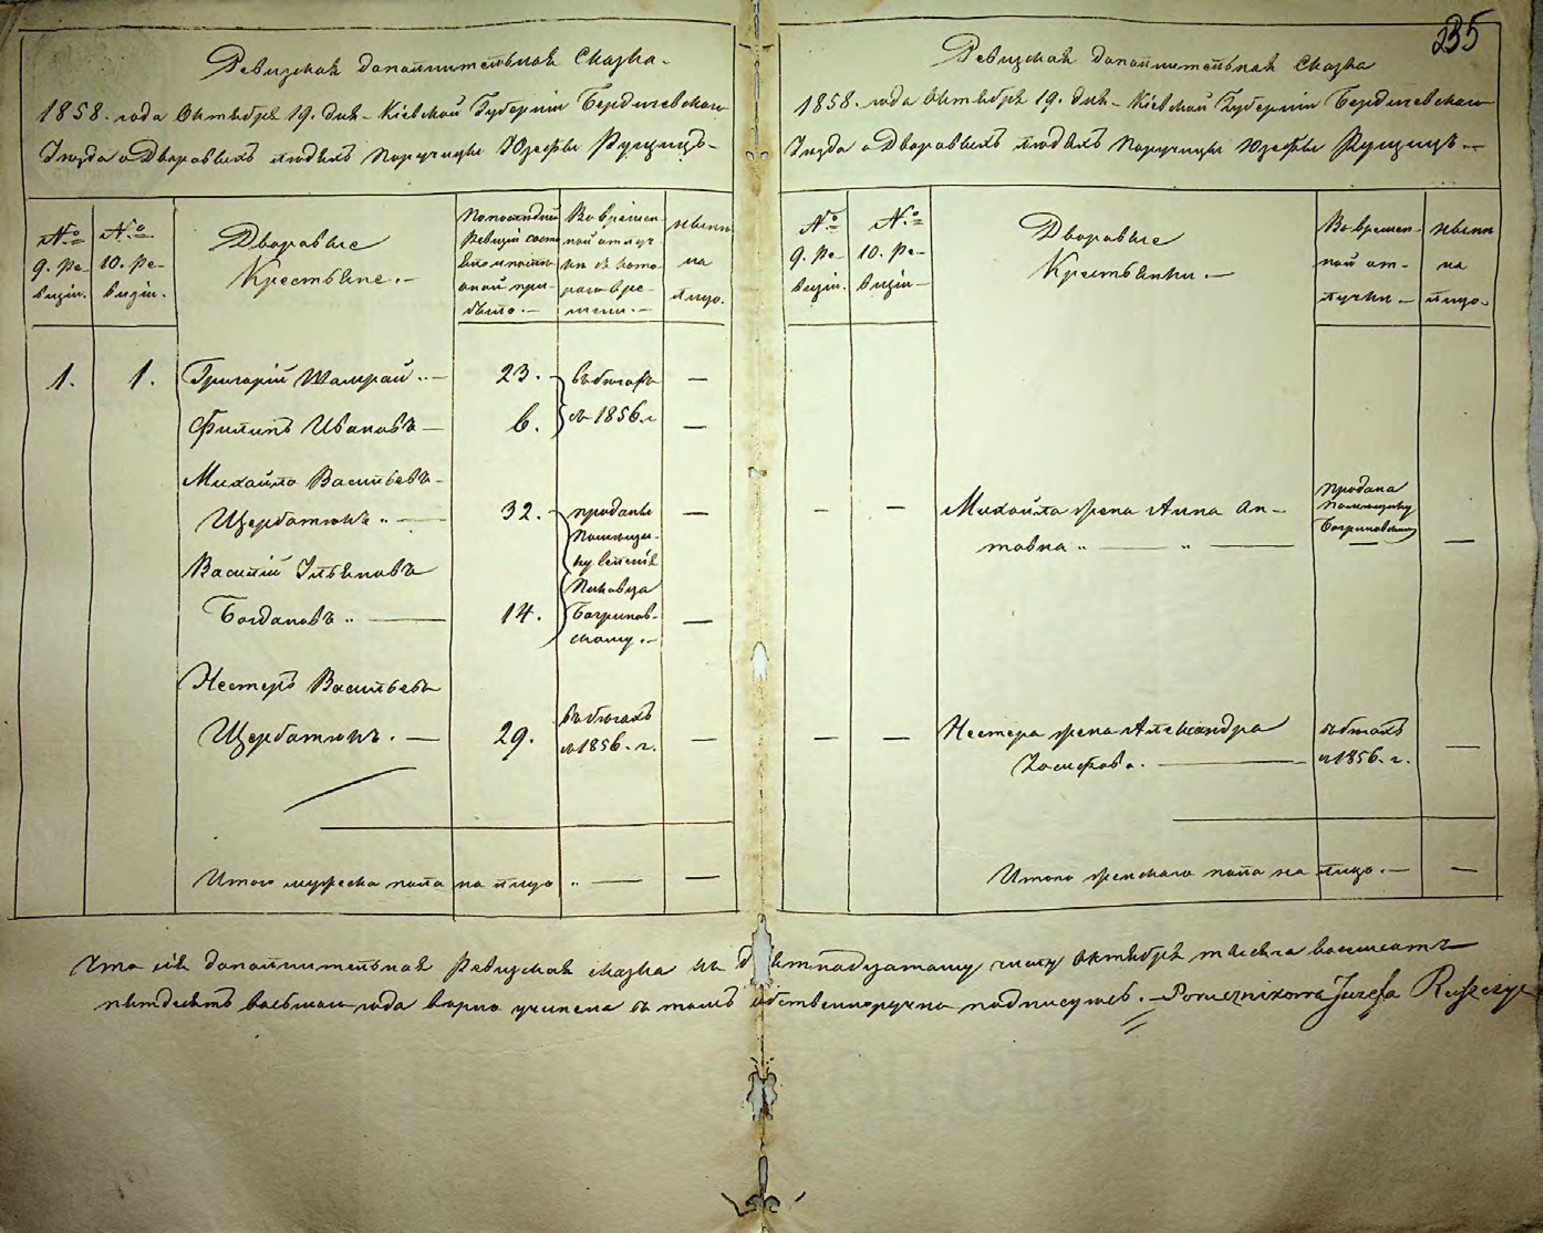 235
Ревизская дополнительная Сказка.
1858. года Октября 19. дня - Кіевской Губерніи Бердичевскаго
Уезда о Дворовыхъ людяхъ Поручицы Юзефы Рущицъ -
№ 9. ре-
визіи.
№ 10. ре-
визіи.
Дворовые
Крестьяне. -
По последней
Ревизіи состо
было. -
Во времен
ной отлуч
ки съ кото
раго вре-
мени. -
ныне
на
лицо.
1. 1. Григорій Шамрай .. - 23. - въ бегахъ —
Филипъ Ивановъ — 6. съ 1856. г —
Михайло Васильевъ -
Щербатюкъ .. — 32. - проданы —
Помещи-
ку
Василій Ульяновъ
Богдановъ .. — 14. —
Пиковца
Богринов-
скому. -
Нестеръ Васильевъ
Щербатюкъ. — 29. въ бегахъ —
съ 1856. г.
Итого мужеска пола на лицо .. — —
Ревизская дополнительная Сказка
1858. года Октября 19. дня - Кіевской Губерніи Бердичевскаго
Уезда о Дворовыхъ людяхъ Поручицы Юзефы Рущицъ. -
№
9. ре-
визіи.
№
10. ре-
визіи -
Дворовые
Крестьянки. —
Во времен-
ной от-
лучки. -
ныне
на
лицо.
— — Михайла жена Анна Ан-
това .. — .. —
продана
Помещику
Богриновскому
— —
— — Нестера жена Александра
Іосифова. —
въ бегахъ
съ 1856. г. —
Итого женскаго пола на лицо. — —
Что сія дополнительная Ревизская сказка къ девятнадцатому числу Октября месяца восемсотъ
пятдесятъ восьмаго года верно учинена въ томъ собственноручно подписуюсь. - Porucznikowa Juzefa Ruszczyc